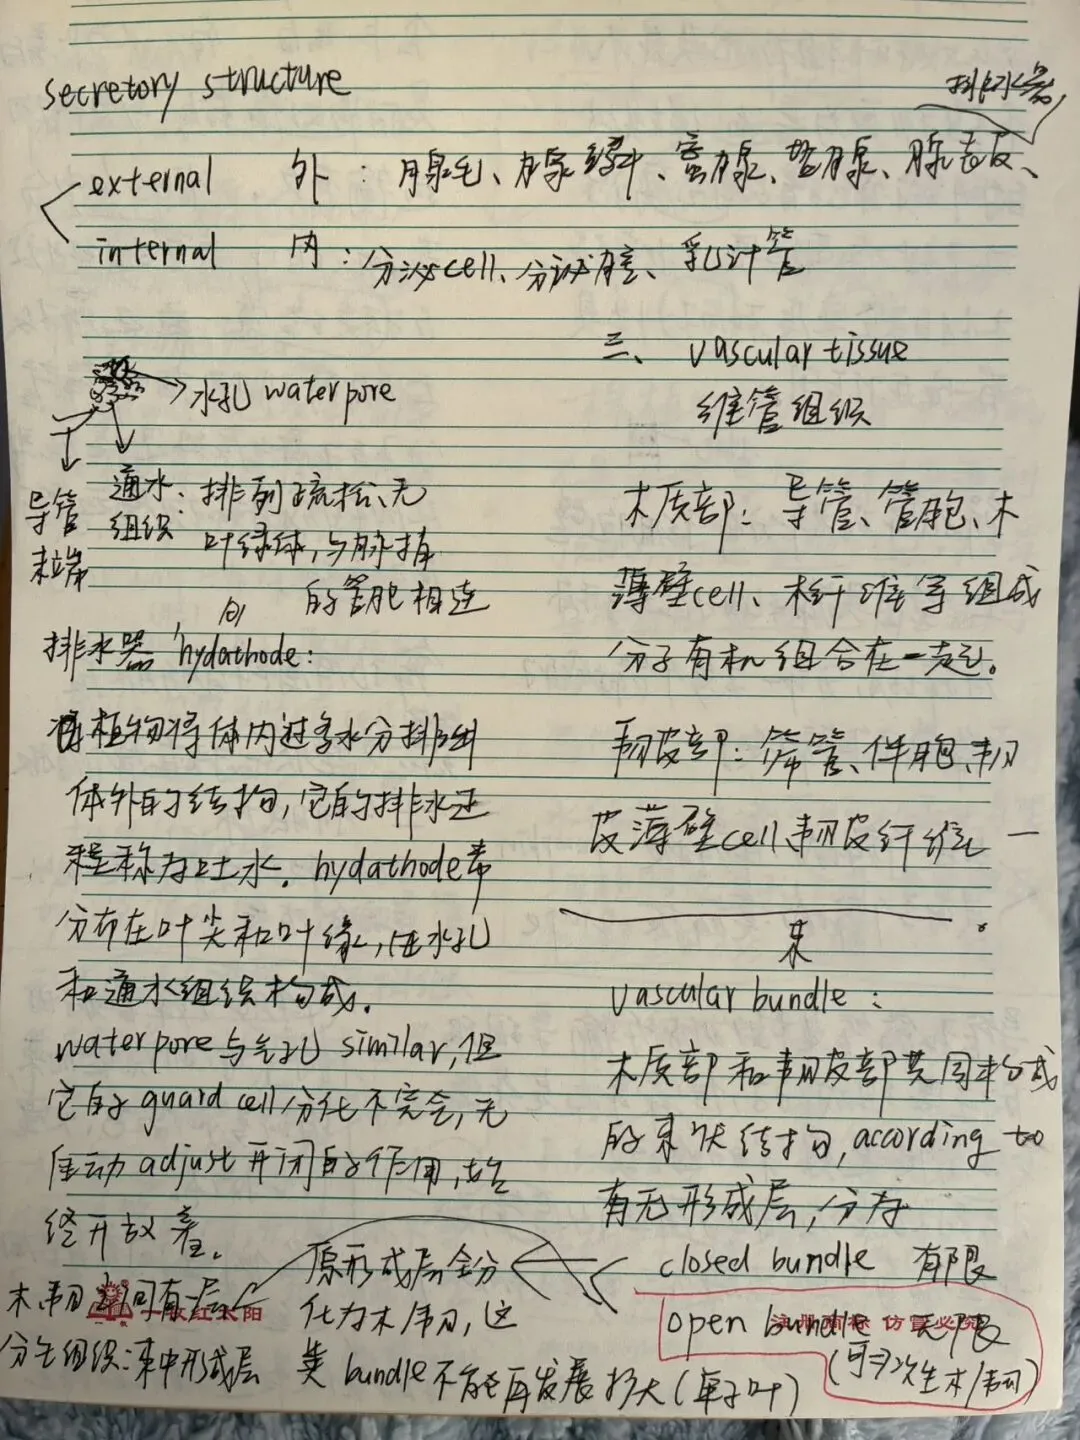 secretory structure
排水器
external 外：腺毛、腺鳞、蜜腺、盐腺、腺表皮、
internal 内：分泌cell、分泌腔、乳汁管
水孔 waterpore
导管
末端
通水：排列疏松、无
组织 叶绿体，与脉梢
的管胞相连
排水器 hydathode：
植物将体内过多水分排出
体外的结构，它的排水过
程称为吐水。hydathode常
分布在叶尖和叶缘，由水孔
和通水组织构成。
waterpore与气孔 similar，但
它的 guard cell分化不完全，无
自动 adjust 开闭的作用，始
终开放着。
三、vascular tissue
维管组织
木质部：导管、管胞、木
薄壁cell、木纤维等组成
分子有机组合在一起。
韧皮部：筛管、伴胞、韧
皮薄壁cell、韧皮纤维
束
vascular bundle：
木质部和韧皮部共同构成
的束状结构，according to
有无形成层，分为
closed bundle 有限
open bundle 无限
(可次生木/韧)
原形成层全分
化为木/韧，这
类 bundle不能再发展扩大(单子叶)
木、韧 间有一层
分生组织：束中形成层
红太阳
注册商标 仿冒必究